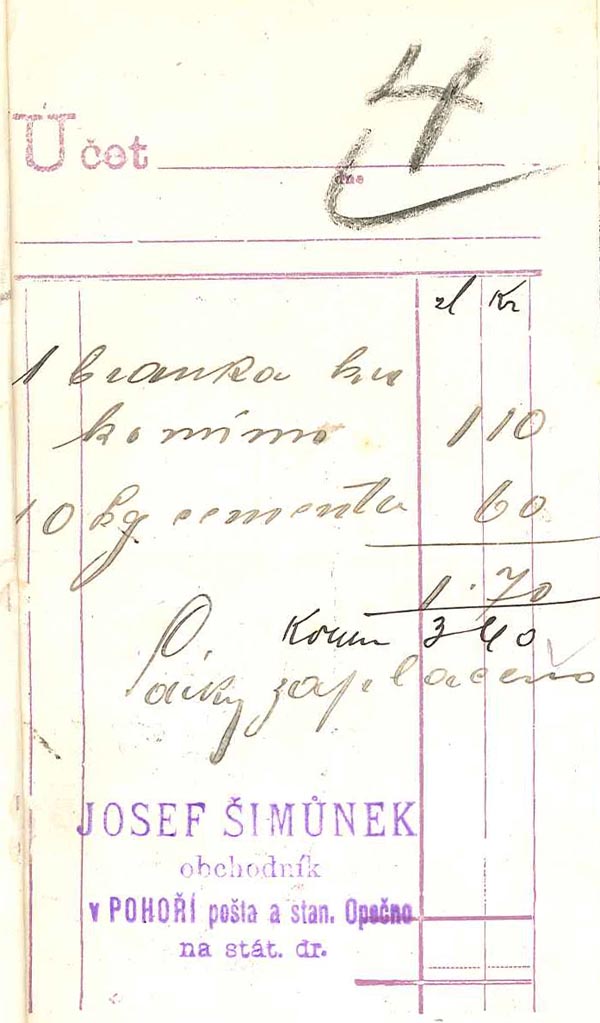 4
Účet
dne
zl Kr
1 branka ku
komínu 1 10
10 kg cementu 60
1.70
Korun 3 40
Díky zaplaceno
JOSEF ŠIMŮNEK
obchodník
v POHOŘÍ pošta a stan. Opočno
na stát. dr.